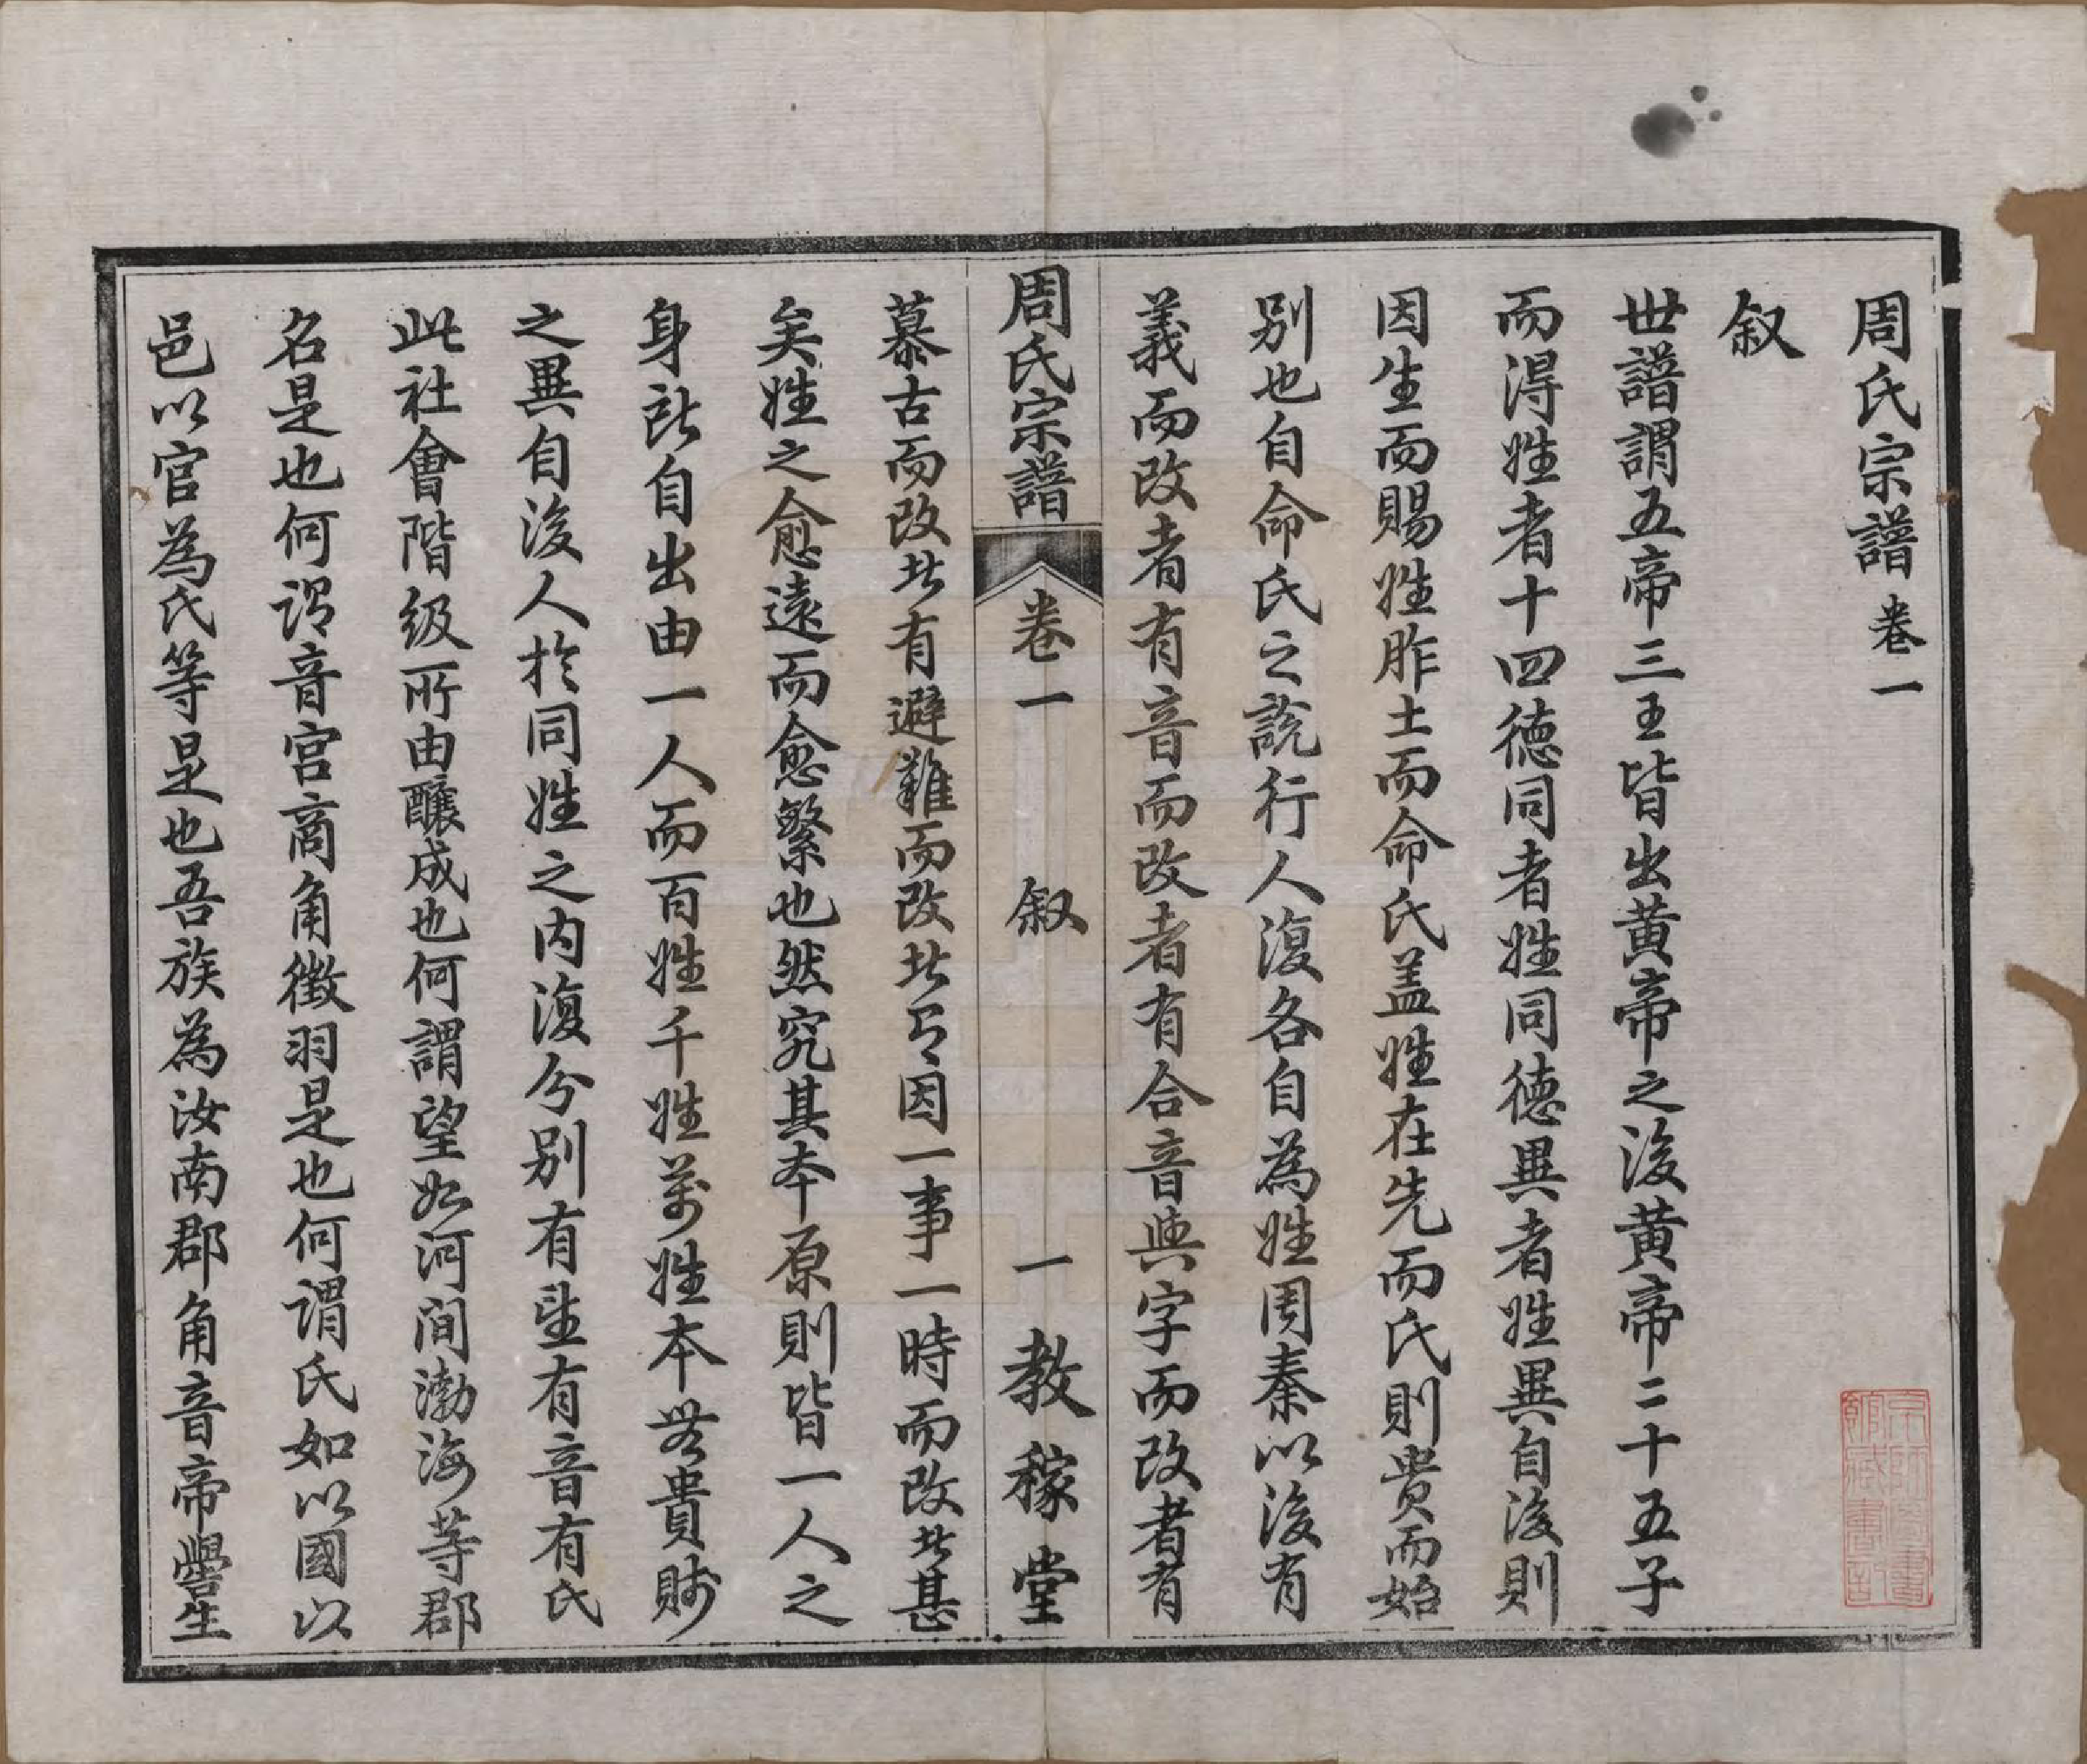 周氏宗譜 卷一
叙
世譜謂五帝三王皆出黄帝之後黄帝二十五子
而得姓者十四德同者姓同德異者姓異自後則
因生而賜姓胙土而命氏盖姓在先而氏則贵而始
别也自命氏之説行人復各自為姓周秦以後有
義而改者有音而改者有合音與字而改者有
周氏宗譜 卷一 叙 一 教稼堂
慕古而改者有避難而改者有因一事一時而改者甚
矣姓之愈遠而愈繁也然究其本原則皆一人之
身所自出由一人而百姓千姓萬姓本無貴賤
之異自後人於同姓之内復分别有望有音有氏
此社會階級所由釀成也何謂望如河间渤海等郡
名是也何謂音宫商角徵羽是也何谓氏如以國以
邑以官為氏等是也吾族為汝南郡角音帝嚳生
京師圖書館藏書記